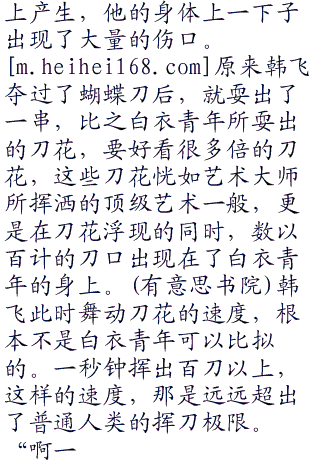 上产生，他的身体上一下子
出现了大量的伤口。
[m.heihei168.com]原来韩飞
夺过了蝴蝶刀后，就耍出了
一串，比之白衣青年所耍出
的刀花，要好看很多倍的刀
花，这些刀花恍如艺术大师
所挥洒的顶级艺术一般，更
是在刀花浮现的同时，数以
百计的刀口出现在了白衣青
年的身上。(有意思书院)韩
飞此时舞动刀花的速度，根
本不是白衣青年可以比拟
的。一秒钟挥出百刀以上，
这样的速度，那是远远超出
了普通人类的挥刀极限。
“啊一